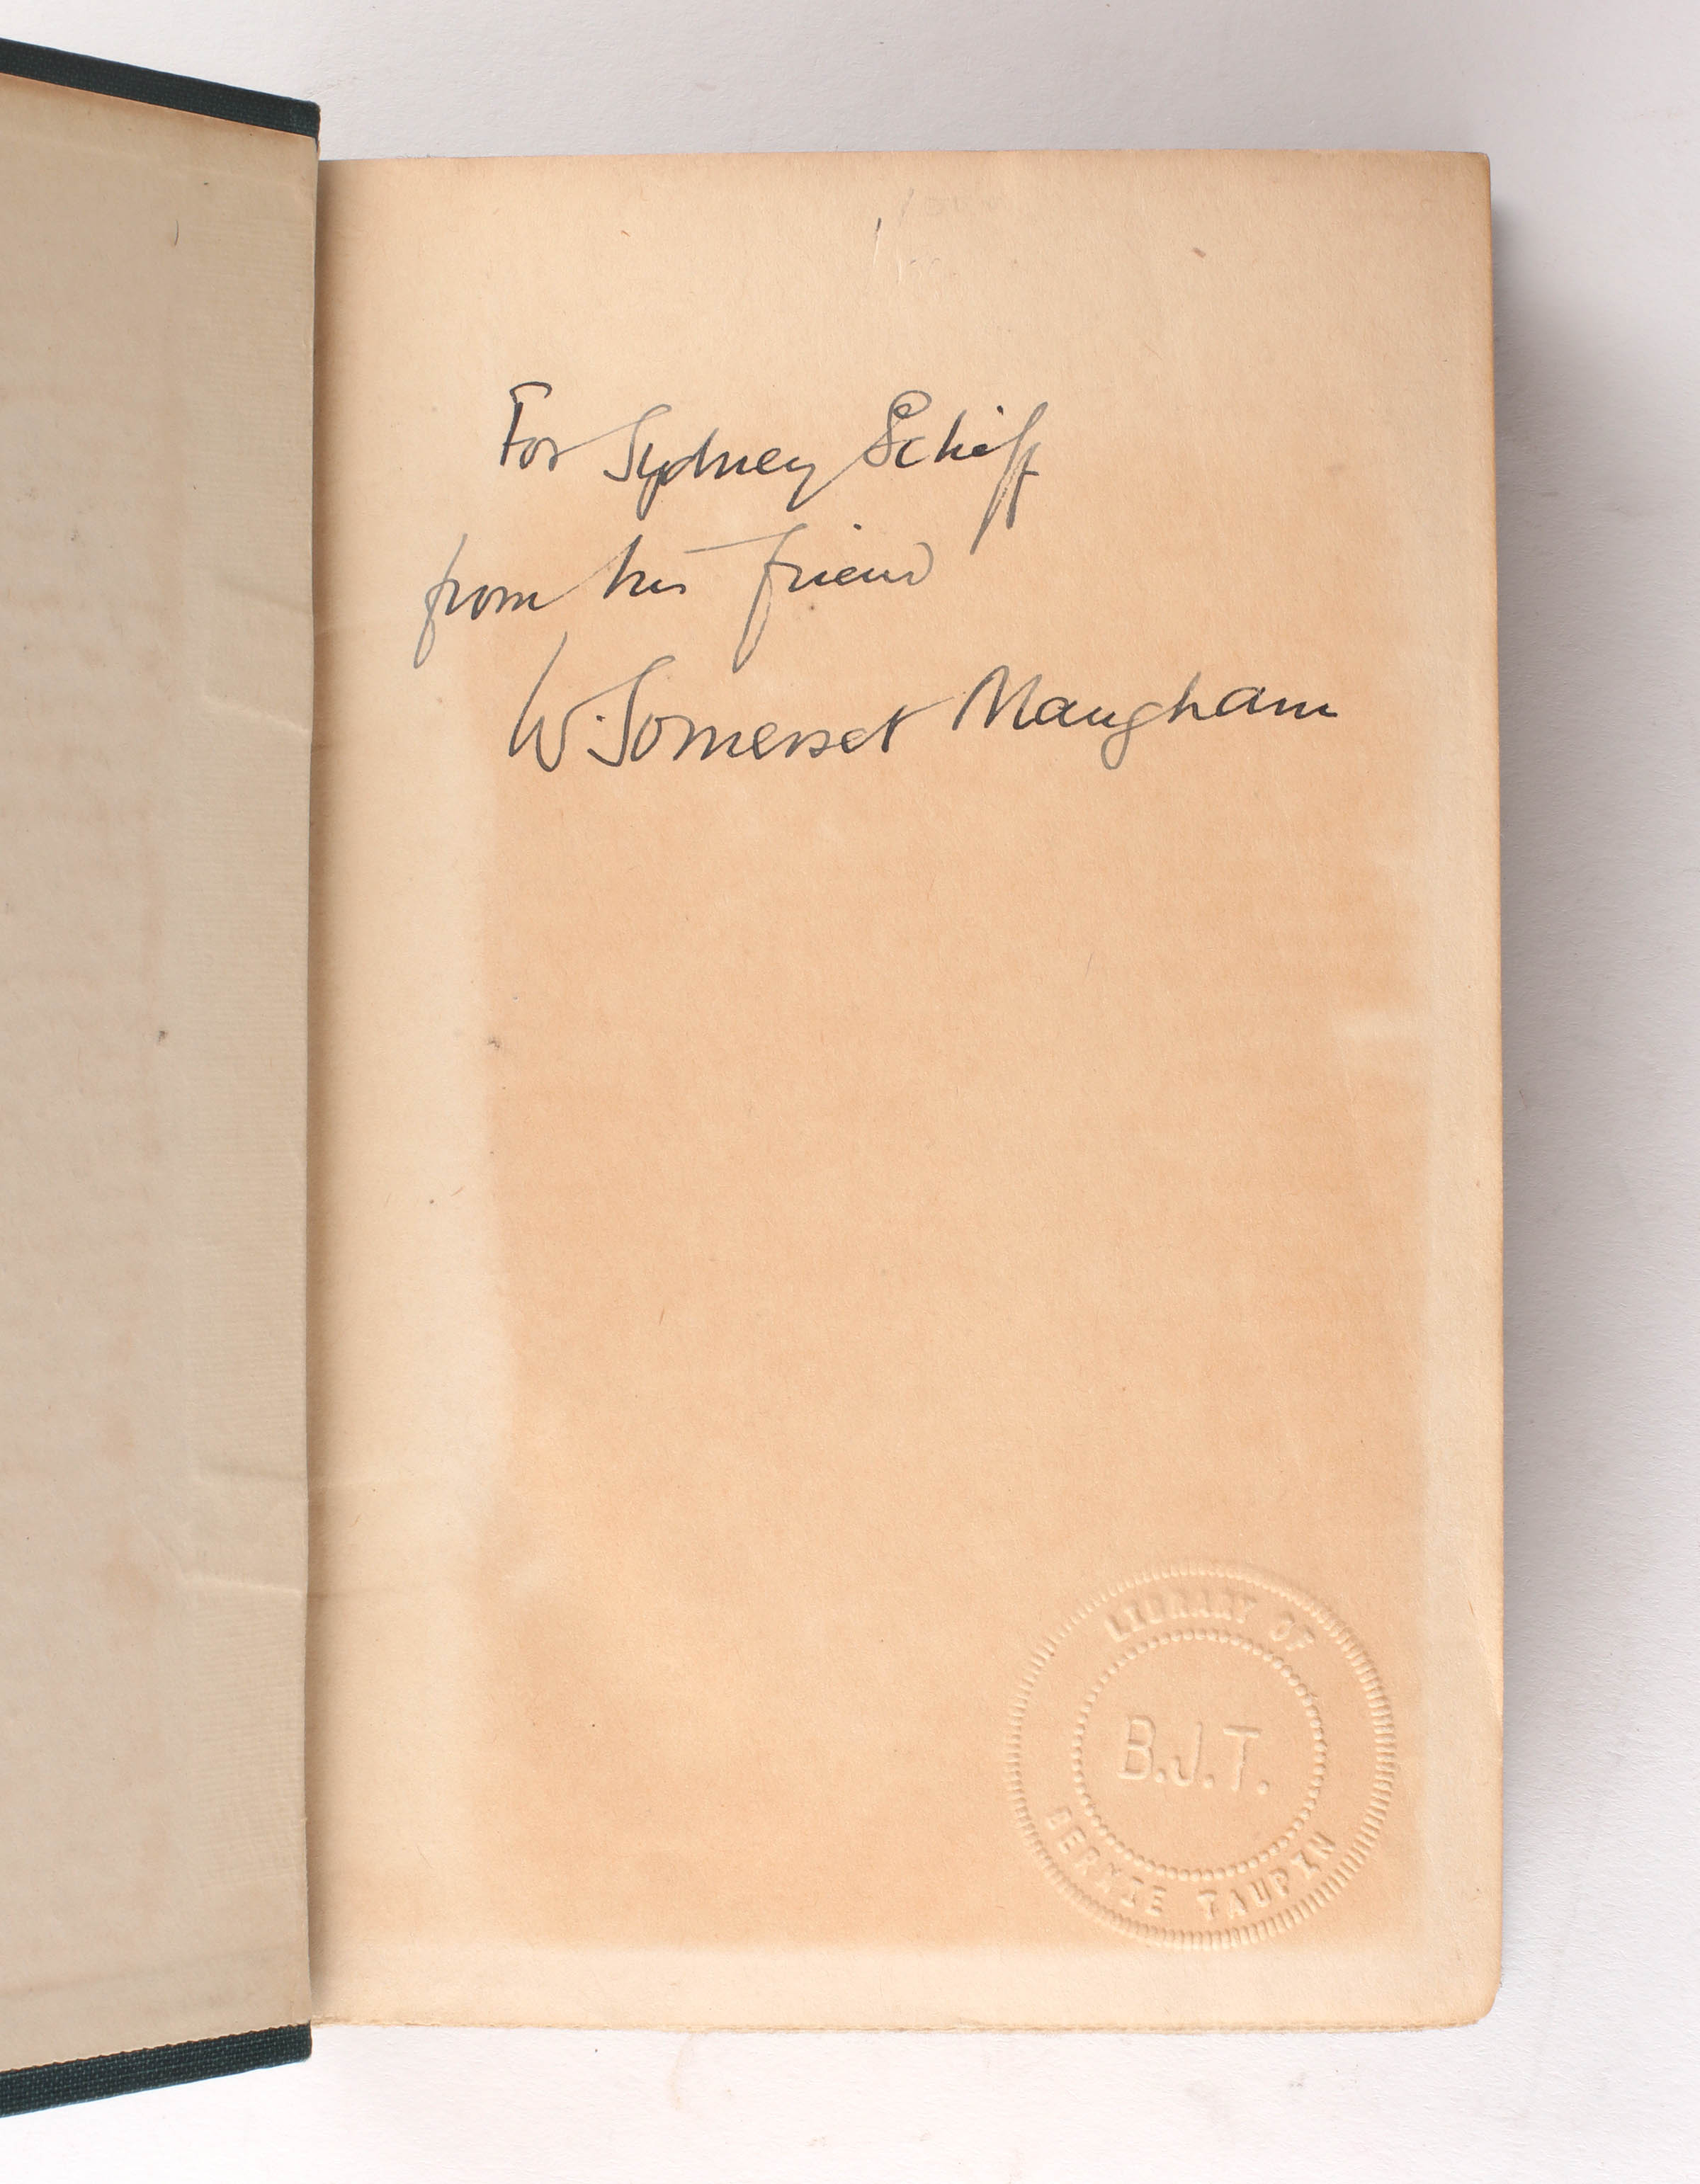 For Sydney Schiff
from his friend
W. Somerset Maugham
LIBRARY OF
B.J.T.
BERNIE TAUPIN